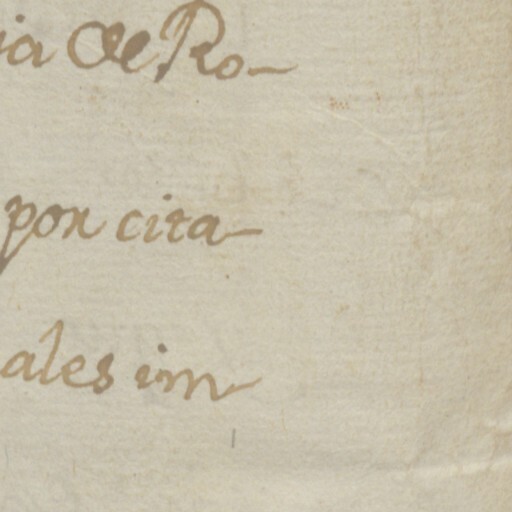 ia de Ro-
por cita-
ales im-